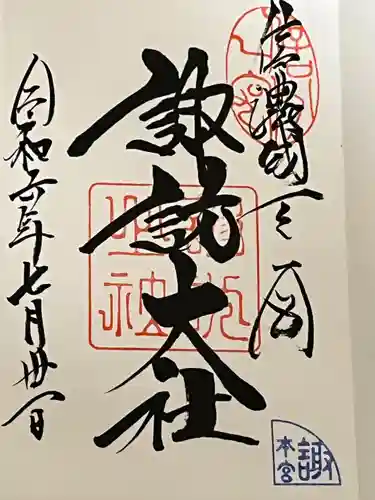 信濃國一之宮
諏訪大社
令和六年七月卅一日
諏訪大社
本宮
諏